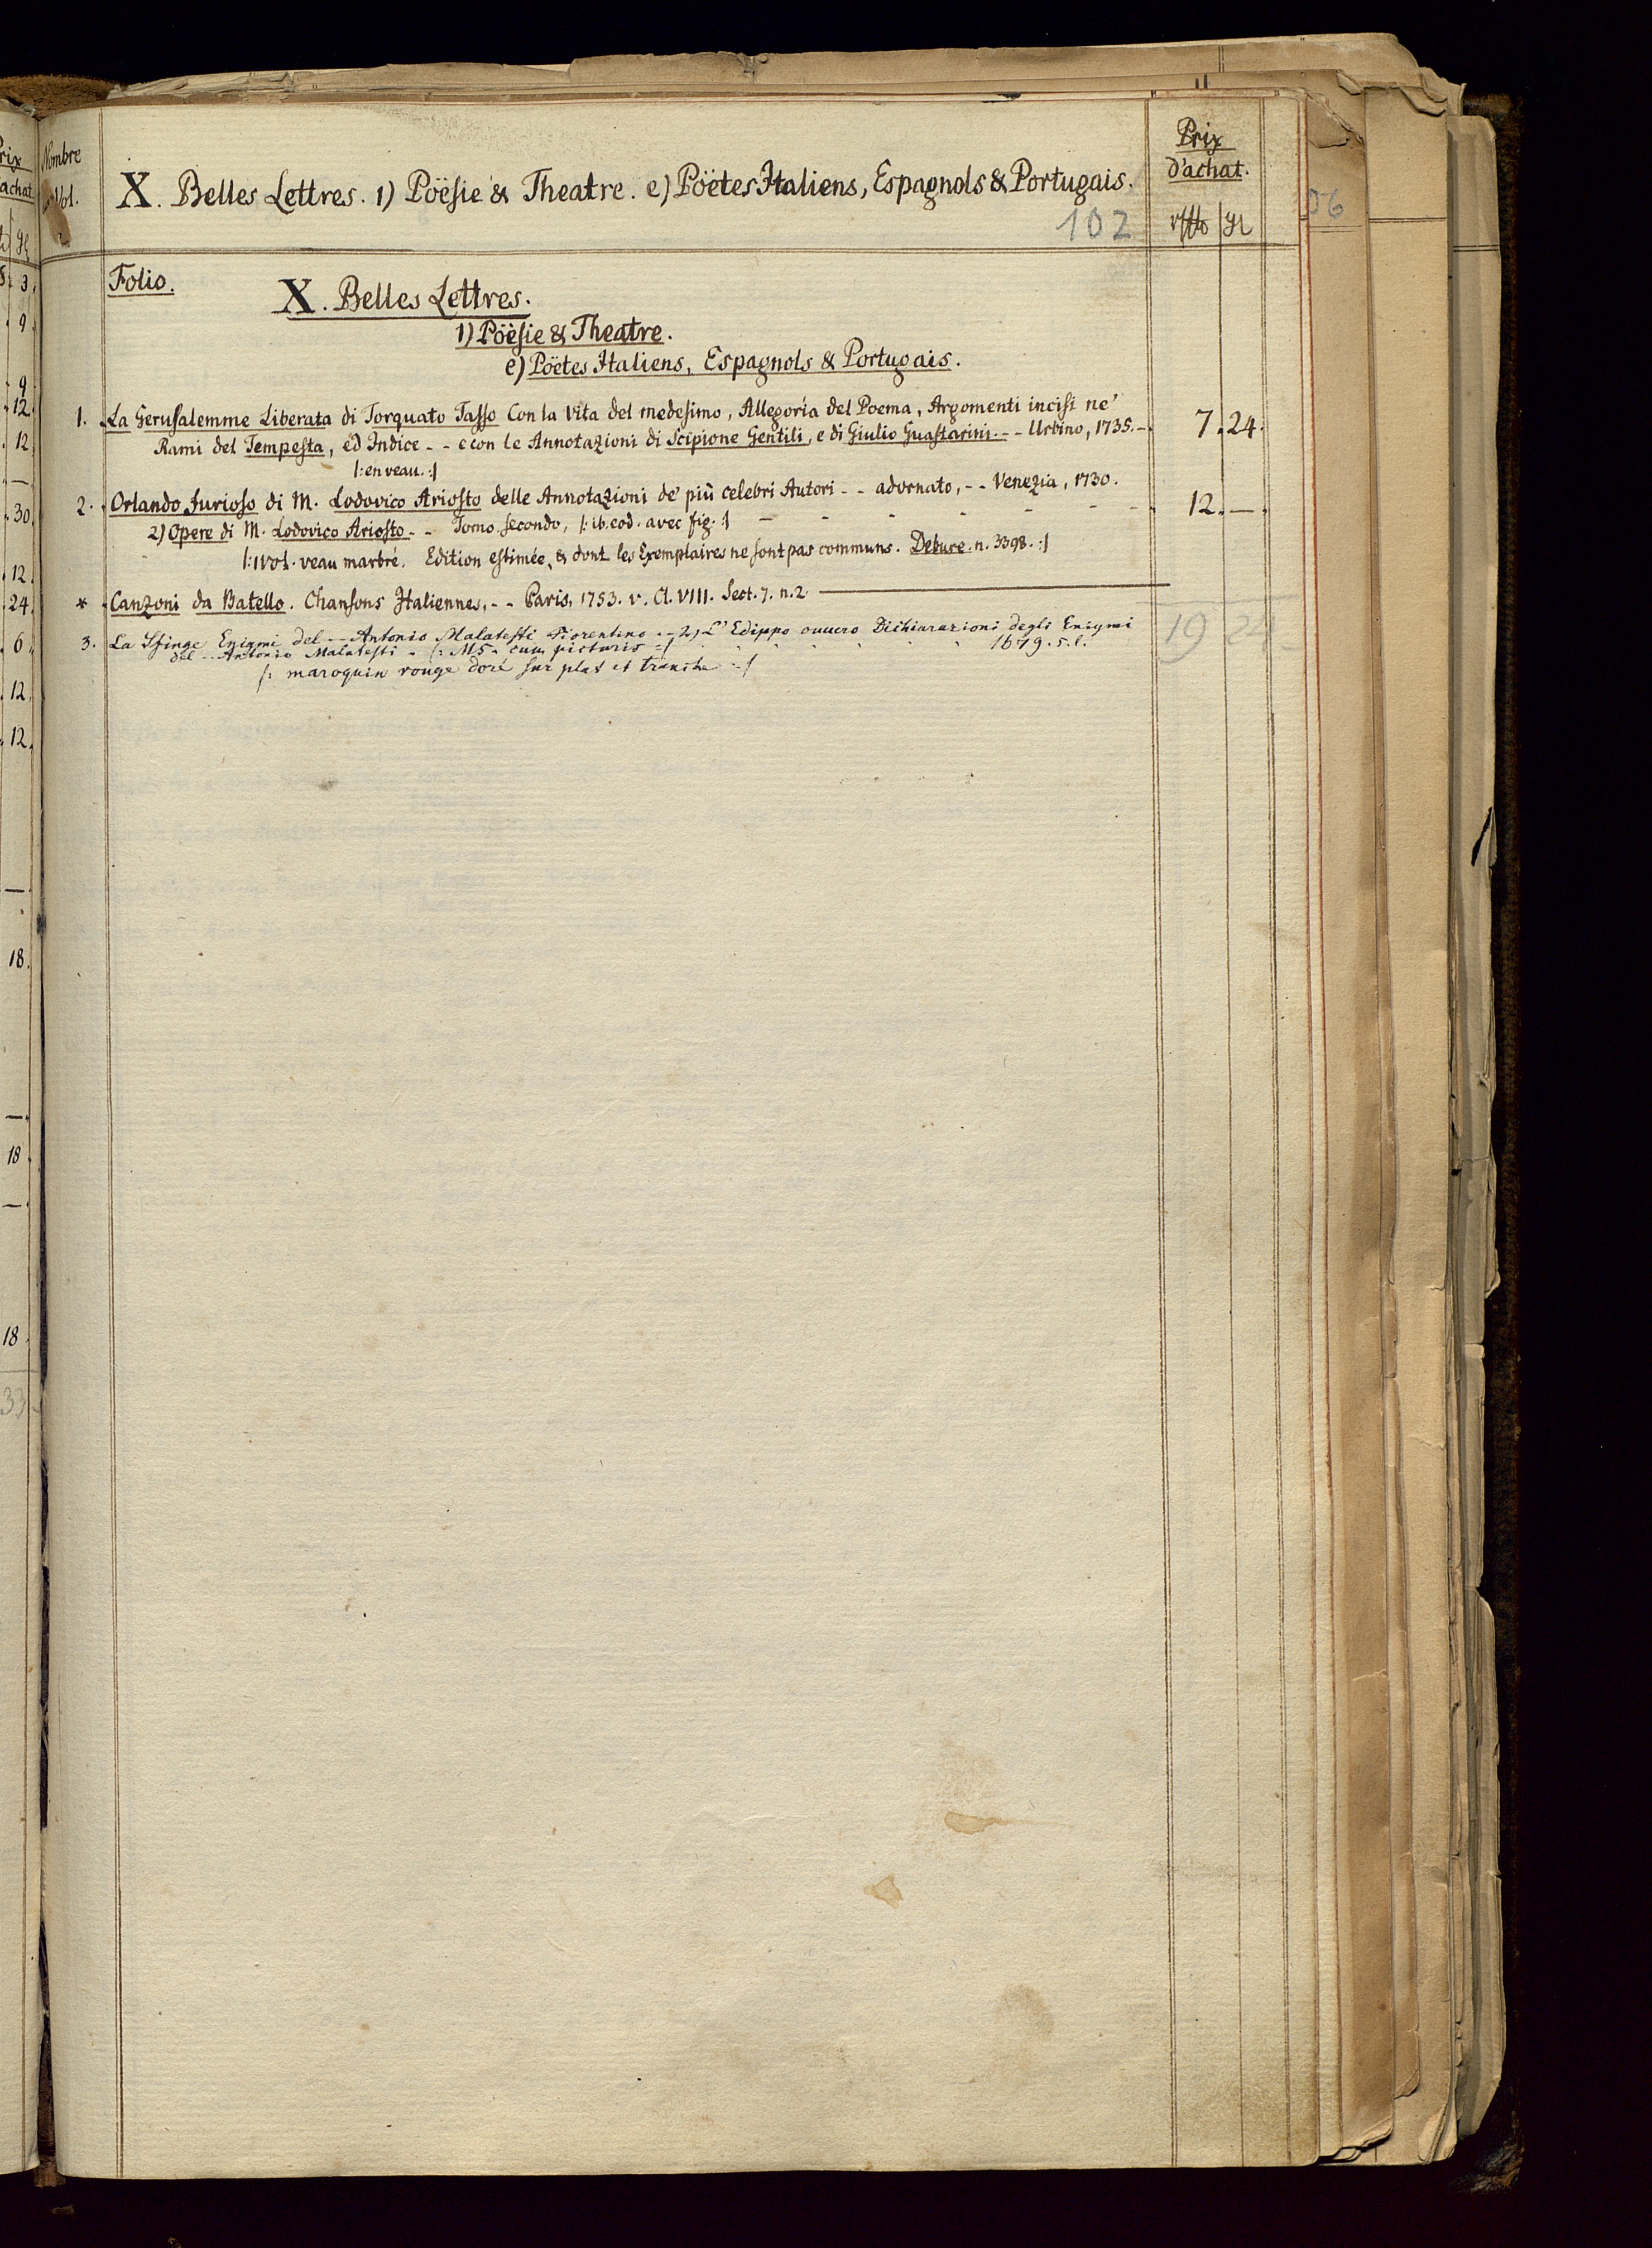 Nombre
Vol.
X. Belles Lettres. 1) Pöësie & Theatre. e) Pöëtes Italiens, Espagnols & Portugais.
Prix
d'achat.
102
Folio.
X. Belles Lettres.
1) Pöësie & Theatre.
e) Pöëtes Italiens, Espagnols & Portugais.
1. La Gerusalemme Liberata di Torquato Tasso Con la Vita del medesimo, Allegoria del Poema, Argomenti incisi ne'
Rami del Tempesta, ed Indice - - e con le Annotazioni di Scipione Gentili, e di Giulio Guastarini. - - Urbino, 1735. - 7. 24.
|: en veau. :|
2. Orlando Furioso di M. Lodovico Ariosto delle Annotazioni de' più celebri Autori - - adornato, - - Venezia, 1730.
2) Opere di M. Lodovico Ariosto - - Tomo secondo, |: ib. eod. avec fig. :| - - - - - - 12. —.
|: 1 vol. veau marbré. Edition estimée, & dont les Exemplaires ne sont pas communs. Debure. n. 3398. :|
* Canzoni da Batello. Chansons Italiennes, - - Paris, 1753. v. Cl. VIII. Sect. 7. n. 2.
3. La Sfinge Enigmi del - - Antonio Malatesti Fiorentino - - 2) L'Edippo ouuero Dichiarazioni degli Enigmi
del - - Antonio Malatesti - |: MS. cum picturis :| 1679. s. l.
|: maroquin rouge doré sur plat et tranche :|
19 24